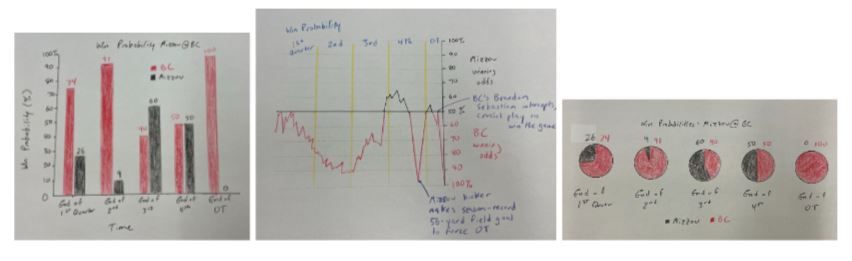 Win Probability Mizzou@BC
100%
90
80
70
60
50
40
30
20
10
0
Win Probability (%)
BC
Mizzou
74
26
91
9
40
60
50
50
100
0
End of
1st Quarter
End of
2nd
End of
3rd
End of
4th
End of
OT
Time
Win Probability
1st
Quarter
2nd
3rd
4th
OT
100%
90
80
70
60
50%
60
70
80
90
100%
Mizzou
winning
odds
BC
winning
odds
BC's Brandon
Sebastian intercepts,
crucial play to
win the game
Mizzou kicker
makes season-record
56-yard field goal
to force OT
Win Probabilities: Mizzou@BC
26 74
9 91
60 40
50 50
0 100
End of
1st Quarter
End of
2nd
End of
3rd
End of
4th
End of
OT
Mizzou
BC